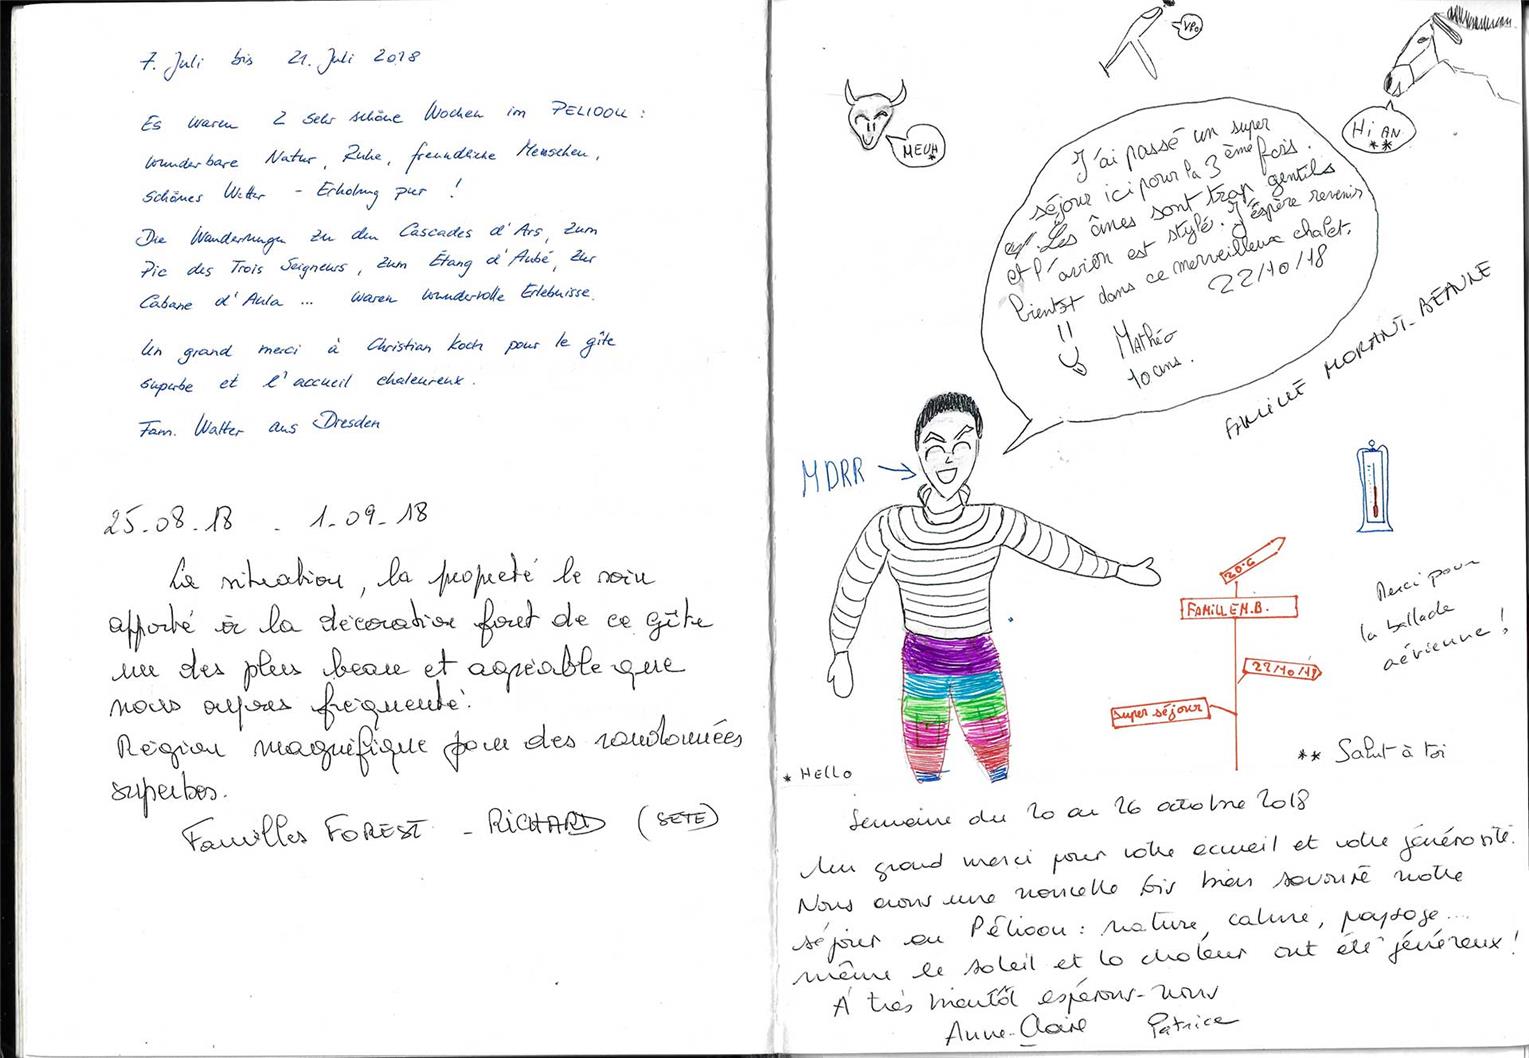 7. Juli bis 21. Juli 2018
Es waren 2 sehr schöne Wochen im PELIOOU :
wunderbare Natur, Ruhe, freundliche Menschen,
schönes Wetter - Erholung pur !
Die Wanderungen zu den Cascades d'Ars, zum
Pic des Trois Seigneurs, zum Étang d'Aubé, zur
Cabane d'Aula ... waren wundervolle Erlebnisse.
Un grand merci à Christian Koch pour le gîte
superbe et l'accueil chaleureux.
Fam. Walter aus Dresden
25-08-18 - 1-09-18
La situation, la propreté le soin
apporté à la décoration font de ce gîte
un des plus beau et agréable que
nous ayons fréquenté.
Région magnifique pour des randonnées
superbes.
Familles FOREST - RICHARD (SETE)
MEUH
*
Hi AN
**
J'ai passé un super
séjour ici pour la 3ème fois.
Les ânes sont trop gentils
et l'avion est stylé. J'éspère revenir
bientst dans ce merveilleux chalet.
22/10/18
Mathéo
10 ans.
FAMILLE MORANT-BÉANNE
MDRR
20°C
FAMILLE M.B.
22/10/18
super séjour
Merci pour
la ballade
aérienne !
* HELLO
** Salut à toi
Semaine du 20 au 26 octobre 2018
Un grand merci pour votre accueil et votre générosité.
Nous avons une nouvelle fois bien savouré notre
séjour au Pélioou : nature, calme, paysage...
même le soleil et la chaleur ont été généreux !
A très bientôt espérons-nous
Anne-Claire Patrice